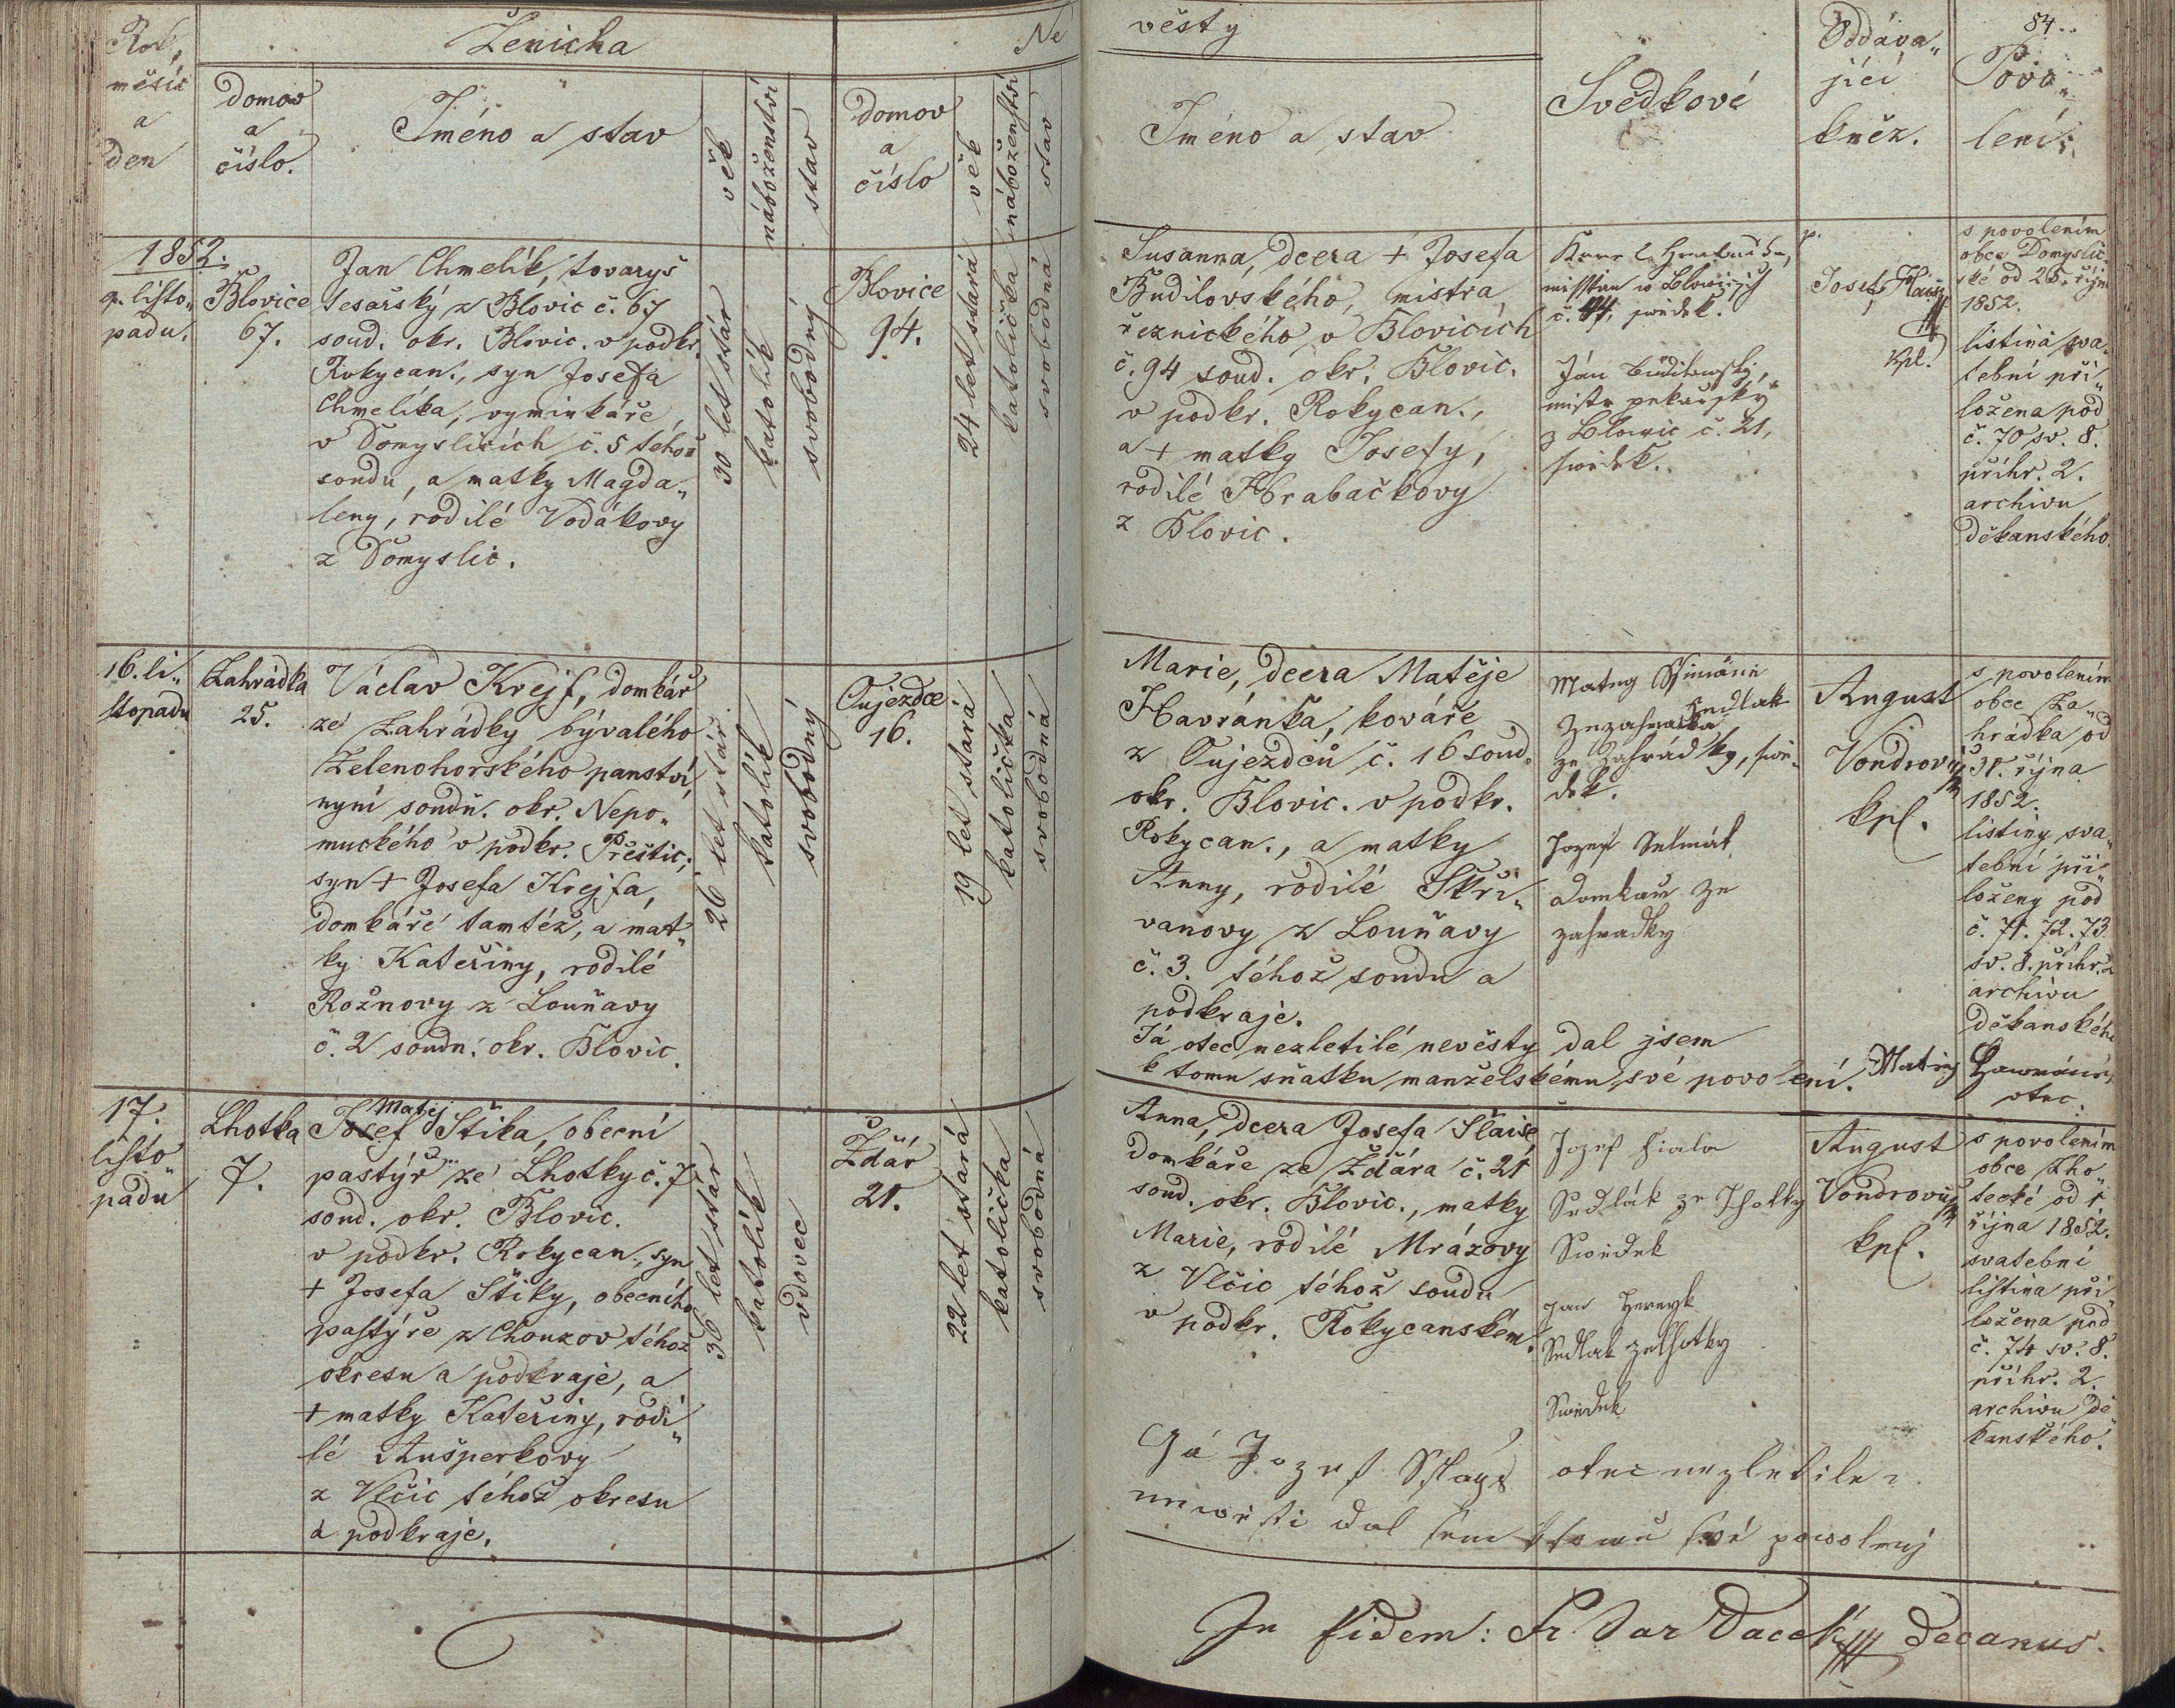 Rok,
měsíc
a
den
Ženicha
domov
a
číslo.
Jméno a stav
věk
náboženství
stav
Ne
domov
a
číslo
věk
náboženství
stav
věsty
Jméno a stav
Svědkové
Oddáva„
jící
kněz.
84.
Povo„
lení.
1852.
9. listo„
padu.
Blovice
67.
Jan Chmelík, tovaryš
tesařský z Blovic č. 67
soud. okr. Blovic. v podkr.
Rokycan., syn Josefa
Chmelíka, vyminkáře
v Domyslicích č. 5 téhož
soudu, a matky Magda„
leny, rodilé Vodákovy
z Domyslic.
30 let stár
katolík
svobodný
Blovice
94.
24 let stará
katolička
svobodná
Susanna, dcera + Josefa
Budilovského, mistra
řeznického v Blovicích
č. 94 soud. okr. Blovic.
v podkr. Rokycan.,
a + matky Josefy,
rodilé Hrabačkovy
z Blovic.
misstian w Blowiczjch
č. 44, swědek.
Ján Budilowský,
mistr pekařský
z Blowic č. 21,
swědek.
p.
Josef
kpl.
s povolením
obce Domyslic„
ské od 25. říjn
1852.
listina sva„
tební při„
ložena pod
č. 70 sv. 8.
příhr. 2.
archivu
děkanského.
16. li„
stopadu
Zahrádka
25.
Václav Krejf, domkář
ze Zahrádky bývalého
Zelenohorského panství,
nyní soudn. okr. Nepo„
muckého v podkr. Přestic.;
syn + Josefa Krejfa,
domkáře tamtéž, a mat„
ky Kateřiny, rodilé
Rožnovy z Louňavy
č. 2 soudn. okr. Blovic.
26 let stár
katolík
svobodný
Oujezdce
16.
19 let stará
katolička
svobodná
Marie, dcera Matěje
Havránka, kováře
z Oujezdců č. 16 soud.
okr. Blovic. v podkr.
Rokycan., a matky
Anny, rodilé Skři„
vanovy z Louňavy
č. 3. téhož soudu a
podkraje.
Já otec nezletilé nevěsty dal jsem
k tomu sňatku manželskému své povolení. Matiej
otec.
Mateg
Sedlak
ze Zahrádky, swě„
dek.
Jozef
Domkarz ze
zahradky
August
Vondrovic
kpl.
s povolením
obce Za„
hrádka od
31. října
1852.
listiny sva„
tební při„
loženy pod
č. 71. 72. 73
sv. 8. příhr. 2
archivu
děkanského
17.
listo„
padu
Lhotka
7.
Matěj
Josef Štika, obecní
pastýř ze Lhotky č. 7
soud. okr. Blovic.
v podkr. Rokycan., syn
+ Josefa Štiky, obecního
pastýře z Chouzov téhož
okresu a podkraje, a
+ matky Kateřiny, rodi„
lé Aušperkovy
z Vlčic téhož okresu
a podkraje.
36 let stár
katolík
vdovec
Ždár
21.
22 let stará
katolička
svobodná
Anna, dcera Josefa Slaise
domkáře ze Ždára č. 21
soud. okr. Blovic., matky
Marie, rodilé Mrázovy
z Vlčic téhož soudu
v podkr. Rokycanském.
Jozef Fiala
Sedlák ze Lhotky
Swědek
Jan
Sedlak ze Lhotky
Swědek
August
Vondrovic
kpl.
s povolením
obce Lho„
tecké od 1
října 1852.
svatební
listina při„
ložena pod
č. 74 sv. 8.
příhr. 2.
archivu dě„
kanského.
Já Jozef Sslays otec nezletile
newěsti dal sem ktomu swé powolenj
In fidem: Fr. Vavr. Vacek decanus.